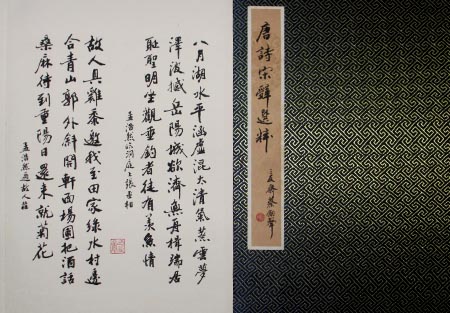 唐詩宋辭選粹
八月湖水平涵虛混太清氣蒸雲夢
澤波撼岳陽城欲濟無舟楫端居
恥聖明坐觀垂釣者徒有羨魚情
孟浩然臨洞庭上張丞相
故人具雞黍邀我至田家綠水村邊
合青山郭外斜開軒面場圃把酒話
桑麻待到重陽日還來就菊花
孟浩然過故人莊